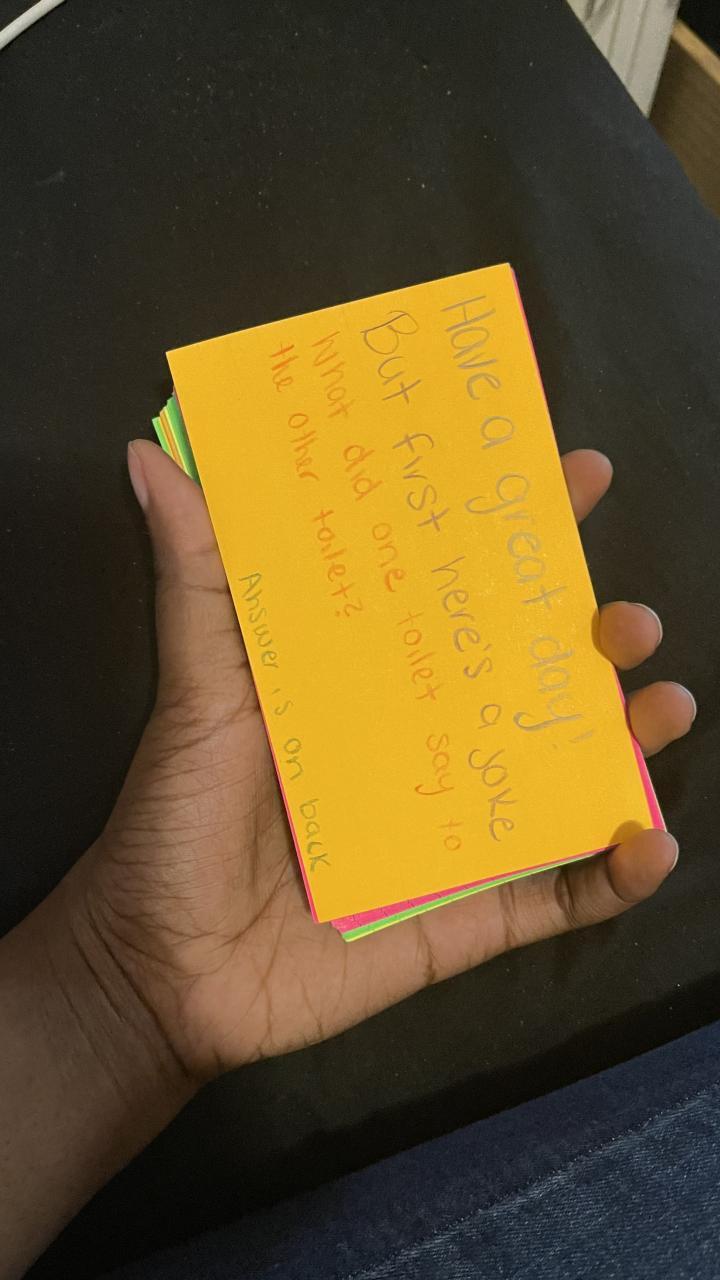 Have a great day!
But first here's a joke
What did one toilet say to
the other toilet?
Answer is on back